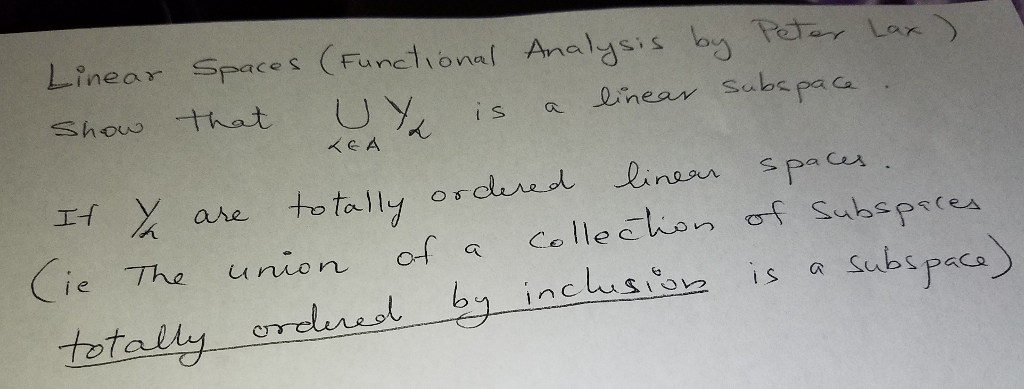 Linear Spaces (Functional Analysis by Peter Lax)
Show that ∪ Yα is a linear subspace.
α∈A
If Yα are totally ordered linear spaces.
(ie The union of a collection of Subspaces
totally ordered by inclusion is a subspace)